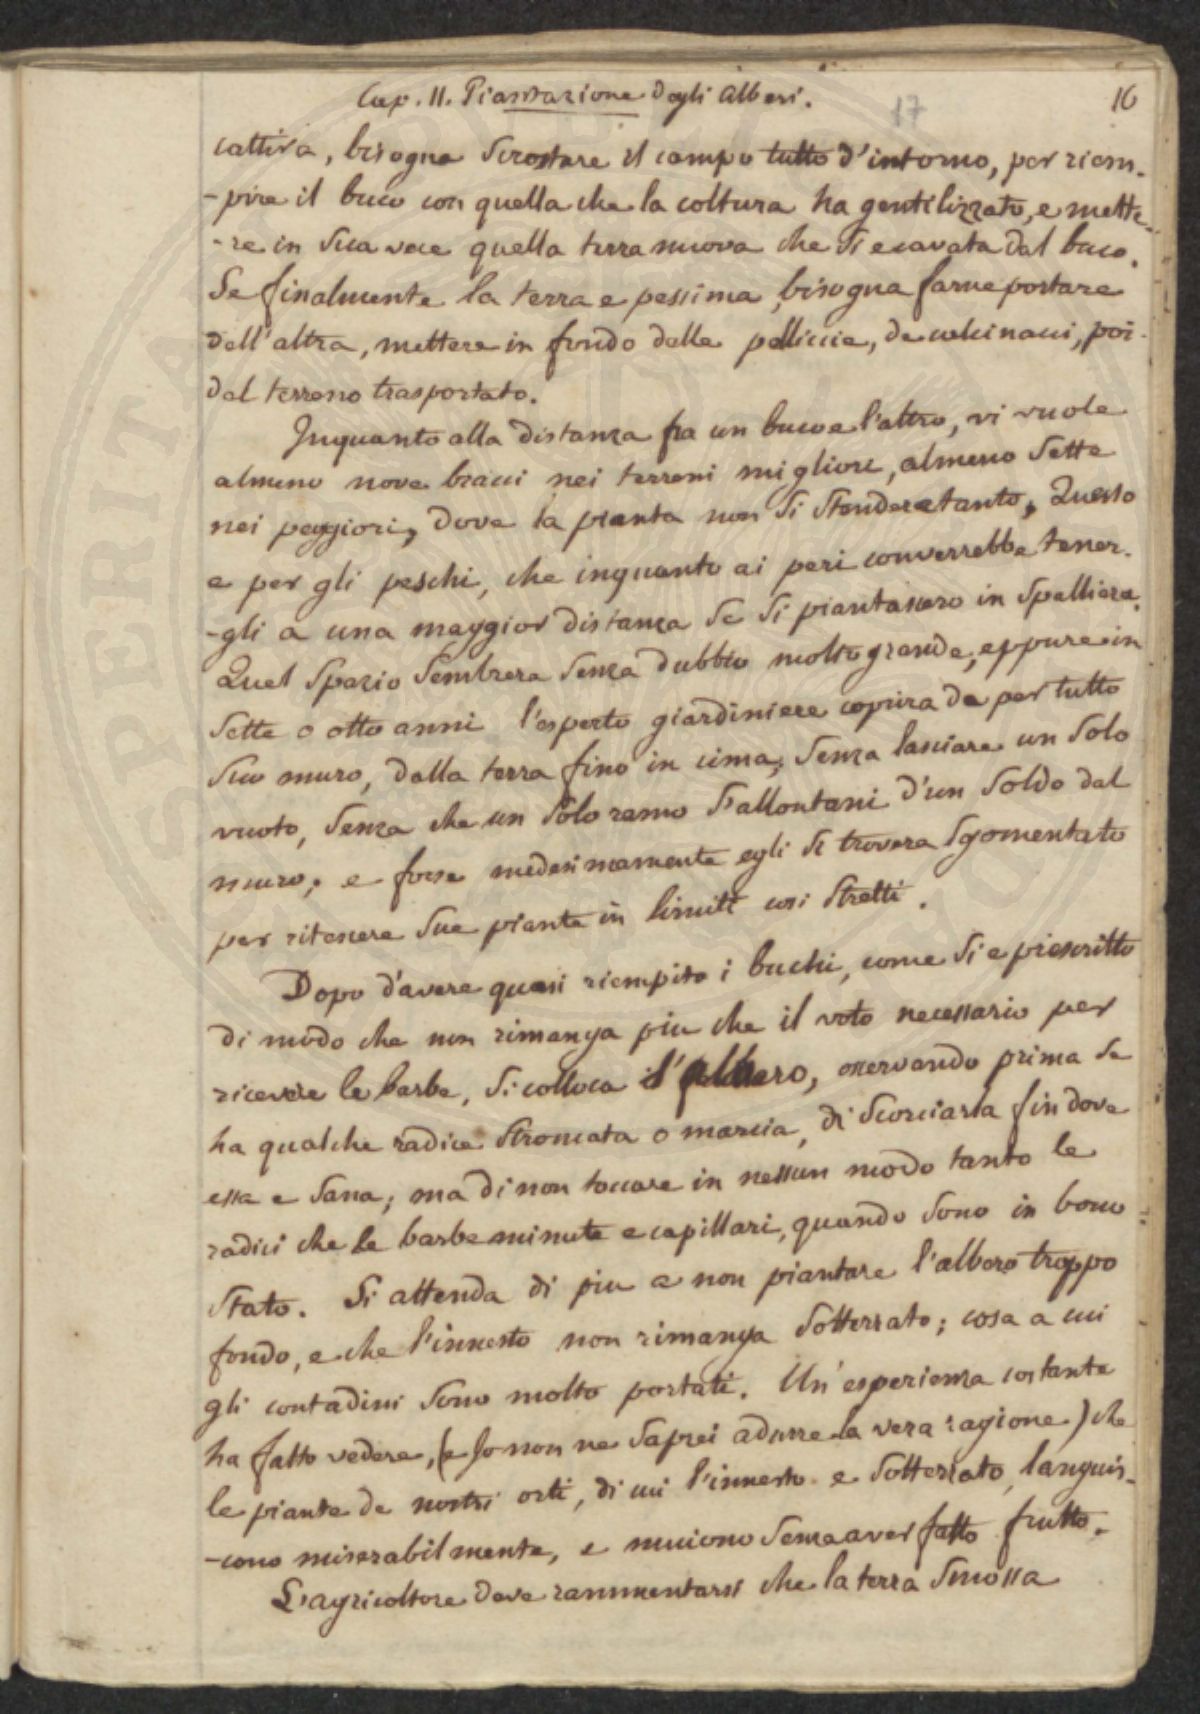 Cap. II. Piantazione degli Alberi.
17
16
cattiva, bisogna scrostare il campo tutto d'intorno, per riem-
-pire il buco con quella che la coltura ha gentilizzato, e mette-
-re in sua vece quella terra nuova che si e cavata dal buco.
Se finalmente la terra e pessima, bisogna farne portare
dell'altra, mettere in fondo delle pelliccie, de calcinacci, poi
del terreno trasportato.
Inquanto alla distanza fra un buco e l'altro, vi vuole
almeno nove bracci nei terreni migliori, almeno sette
nei peggiori, dove la pianta non si stendera tanto, Questo
e per gli peschi, che inquanto ai peri converrebbe tener-
-gli a una maggior distanza se si piantassero in spalliera.
Quel spazio sembrera senza dubbio molto grande, eppure in
sette o otto anni l'esperto giardiniere coprira da per tutto
suo muro, dalla terra fino in cima, senza lasciare un solo
vuoto, senza che un solo ramo s'allontani d'un soldo dal
muro, e forse medesimamente egli si trovera sgomentato
per ritenere sue piante in limiti cosi stretti.
Dopo d'avere quasi riempito i buchi, come si e prescritto
di modo che non rimanga piu che il voto necessario per
ricevere le barbe, si colloca l'albero, osservando prima se
ha qualche radice stroncata o marcia, di scorciarla fin dove
essa e sana, ma di non toccare in nessun modo tanto le
radici che le barbe minute e capillari, quando sono in bono
stato. Si attenda di piu a non piantare l'albero troppo
fondo, e che l'innesto non rimanga sotterrato; cosa a cui
gli contadini sono molto portati. Un'esperienza costante
ha fatto vedere, (e Io non ne saprei adurre la vera ragione) che
le piante de nostri orti, di cui l'innesto e sotterrato, languis-
-cono miserabilmente, e muiono senza aver fatto frutto.
L'agricoltore deve rammentarsi che la terra smossa